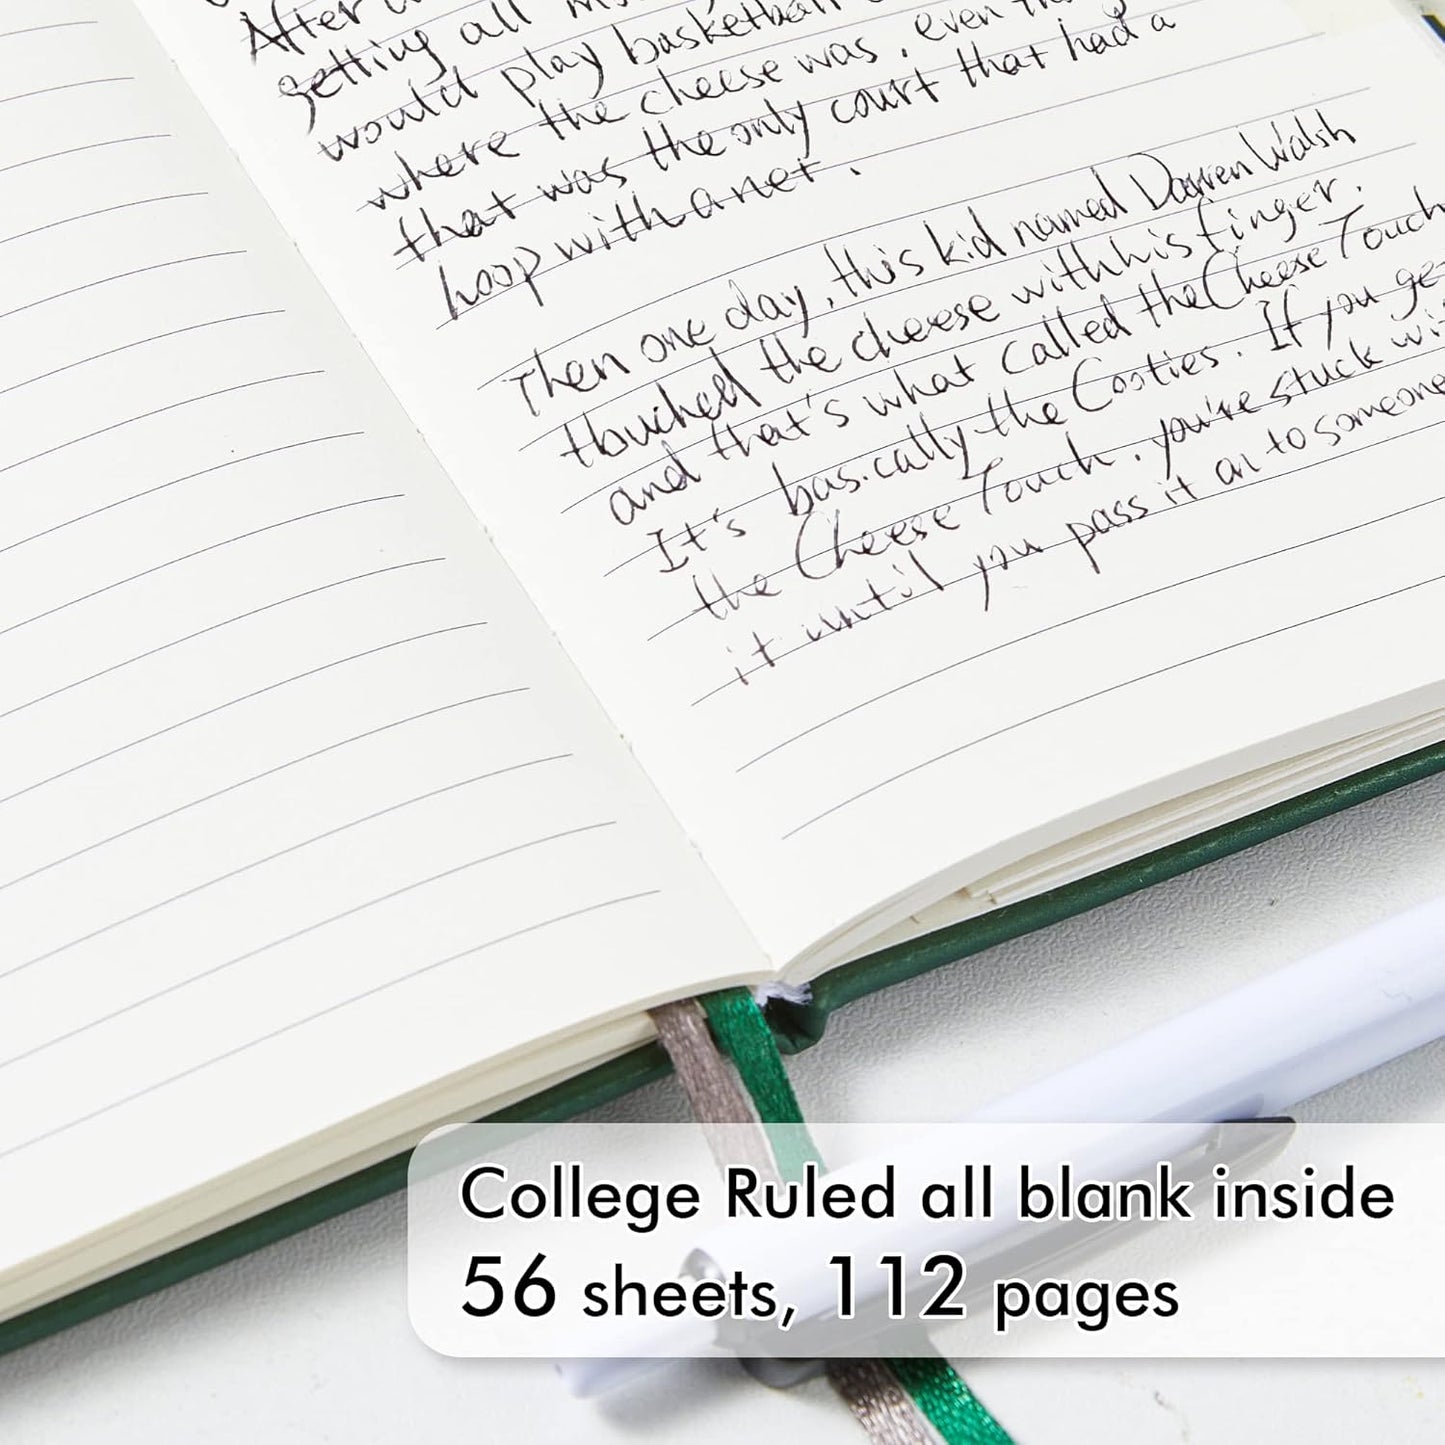 After
getting all
would play basketball
where the cheese was. even
that was the only court that had a
hoop with a net.
Then one day, this kid named Darren Walsh
thuched the cheese with his finger.
and that's what called the Cheese Touch
It's basically the Cooties. If you get
the Cheese Touch. you're stuck wit
it until you pass it on to someone
College Ruled all blank inside
56 sheets, 112 pages